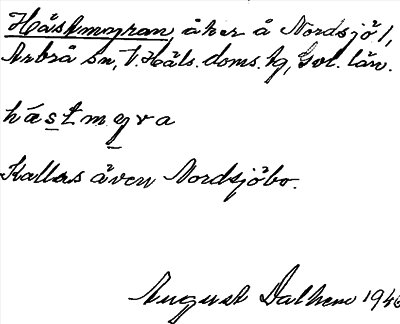 Hästmyran, åker å Nordsjö 1,
Arbrå sn, V. Häls. doms. hg, Gvl. län.
hástmyra
Kallas även Nordsjöbo.
August Dalhem 194